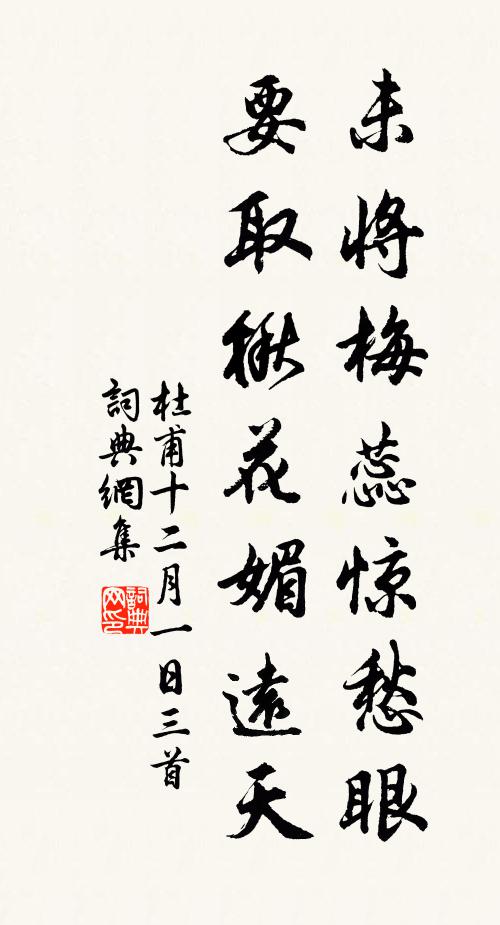 未將梅蕊惊愁眼
要取楸花媚遠天
杜甫十二月一日三首
詞典網集
詞典
网印